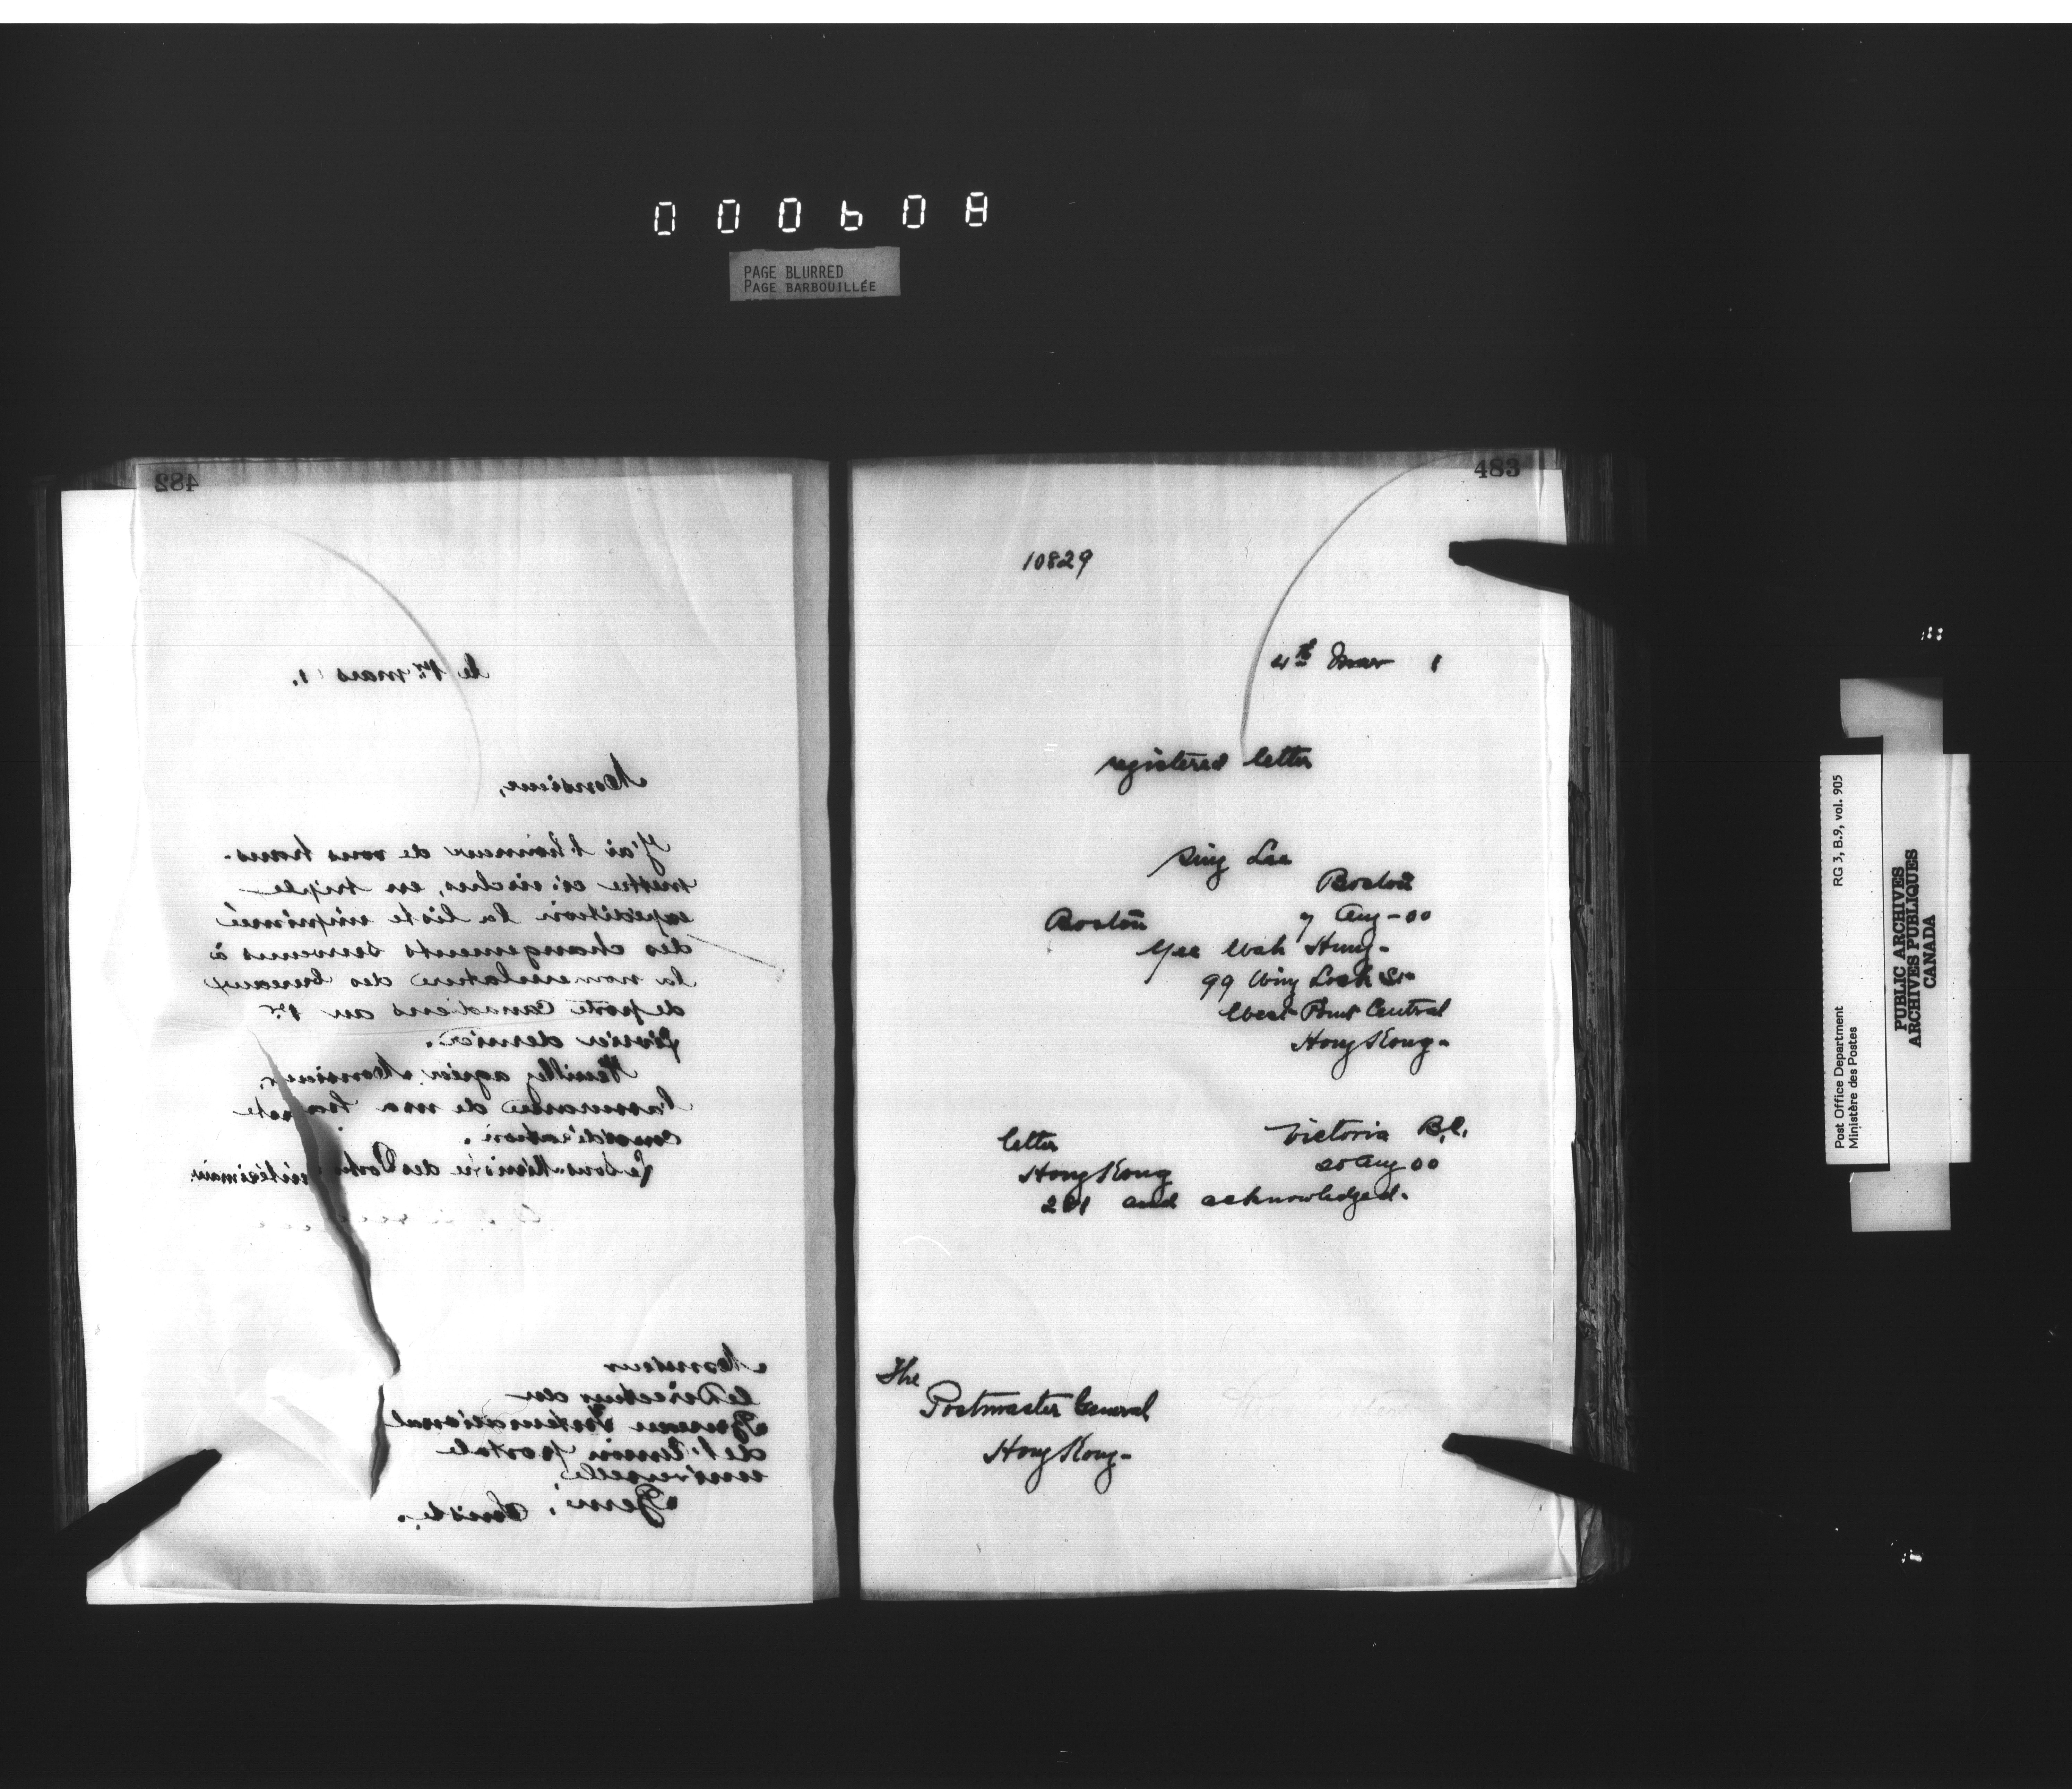 000608
PAGE BLURRED
PAGE BARBOUILLÉE
482
le 1er mars 1.
Monsieur,
J'ai l'honneur de vous trans-
mettre ci-inclus, en triple
expédition la liste imprimée
des changements survenus à
la nomenclature des bureaux
de poste Canadiens au 1er
février dernier.
Veuillez agréer, Monsieur,
l'assurance de ma haute
considération.
Le Sous-Ministre des Postes intérimaire
Monsieur
le Directeur du
Bureau International
de l'Union postale
universelle,
Berne, Suisse.
483
10829
4th Mar 1
registered letter
Sing Lee
Boston
Boston 7 Aug - 00
Yee Wah Hung -
99 Wing Lock St-
West Point Central
Hong Kong -
letter Victoria B.C.
Hong Kong 20 Aug 00
281 and acknowledged.
The
Postmaster General
Hong Kong -
Post Office Department
Ministère des Postes
RG 3, B.9, vol. 905
PUBLIC ARCHIVES
ARCHIVES PUBLIQUES
CANADA